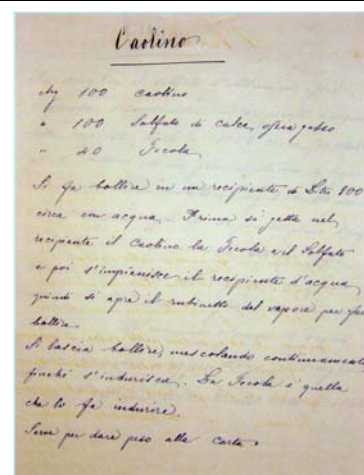 Caolino
Kg 100 caolino
" 100 Solfato di calce, ossia gesso
" 40 Fecola
Si fa bollire in un recipiente di Litri 800
circa con acqua. Prima si getta nel
recipiente il Caolino la Fecola e il Solfato
e poi s'impienisce il recipiente d'acqua,
quindi si apre il rubinetto del vapore per far
bollire.
Si lascia bollire, mescolando continuamente
finchè s'indurisca. La Fecola è quella
che lo fa indurire.
Serve per dare peso alla carta.